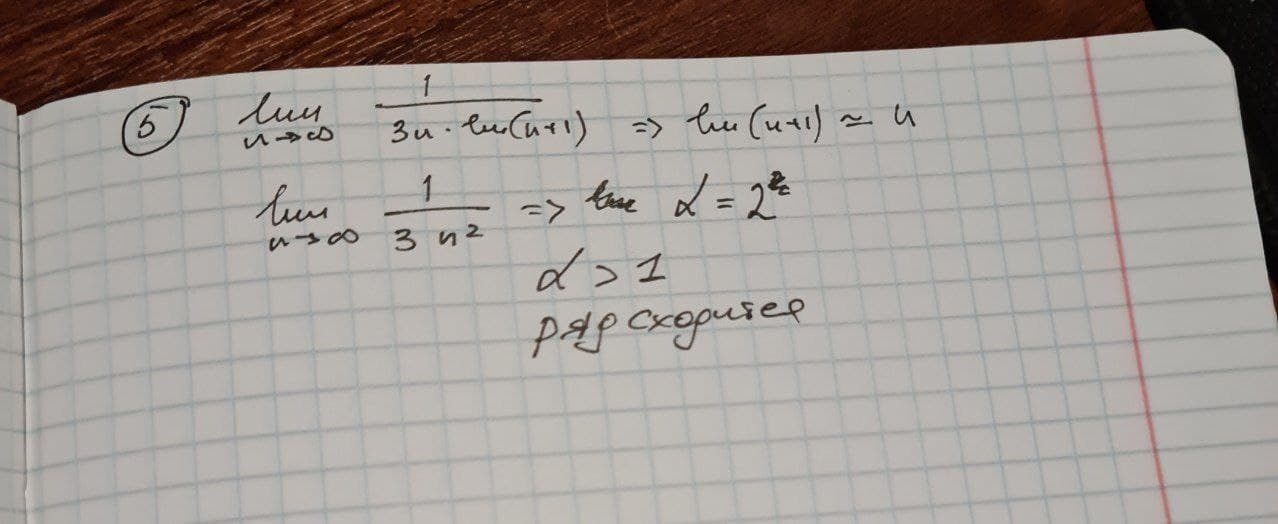 5 lim n→∞ 1 / 3n · ln(n+1) => ln(n+1) ≃ n
lim n→∞ 1 / 3 n² => α = 2
α > 1
ряд сходится